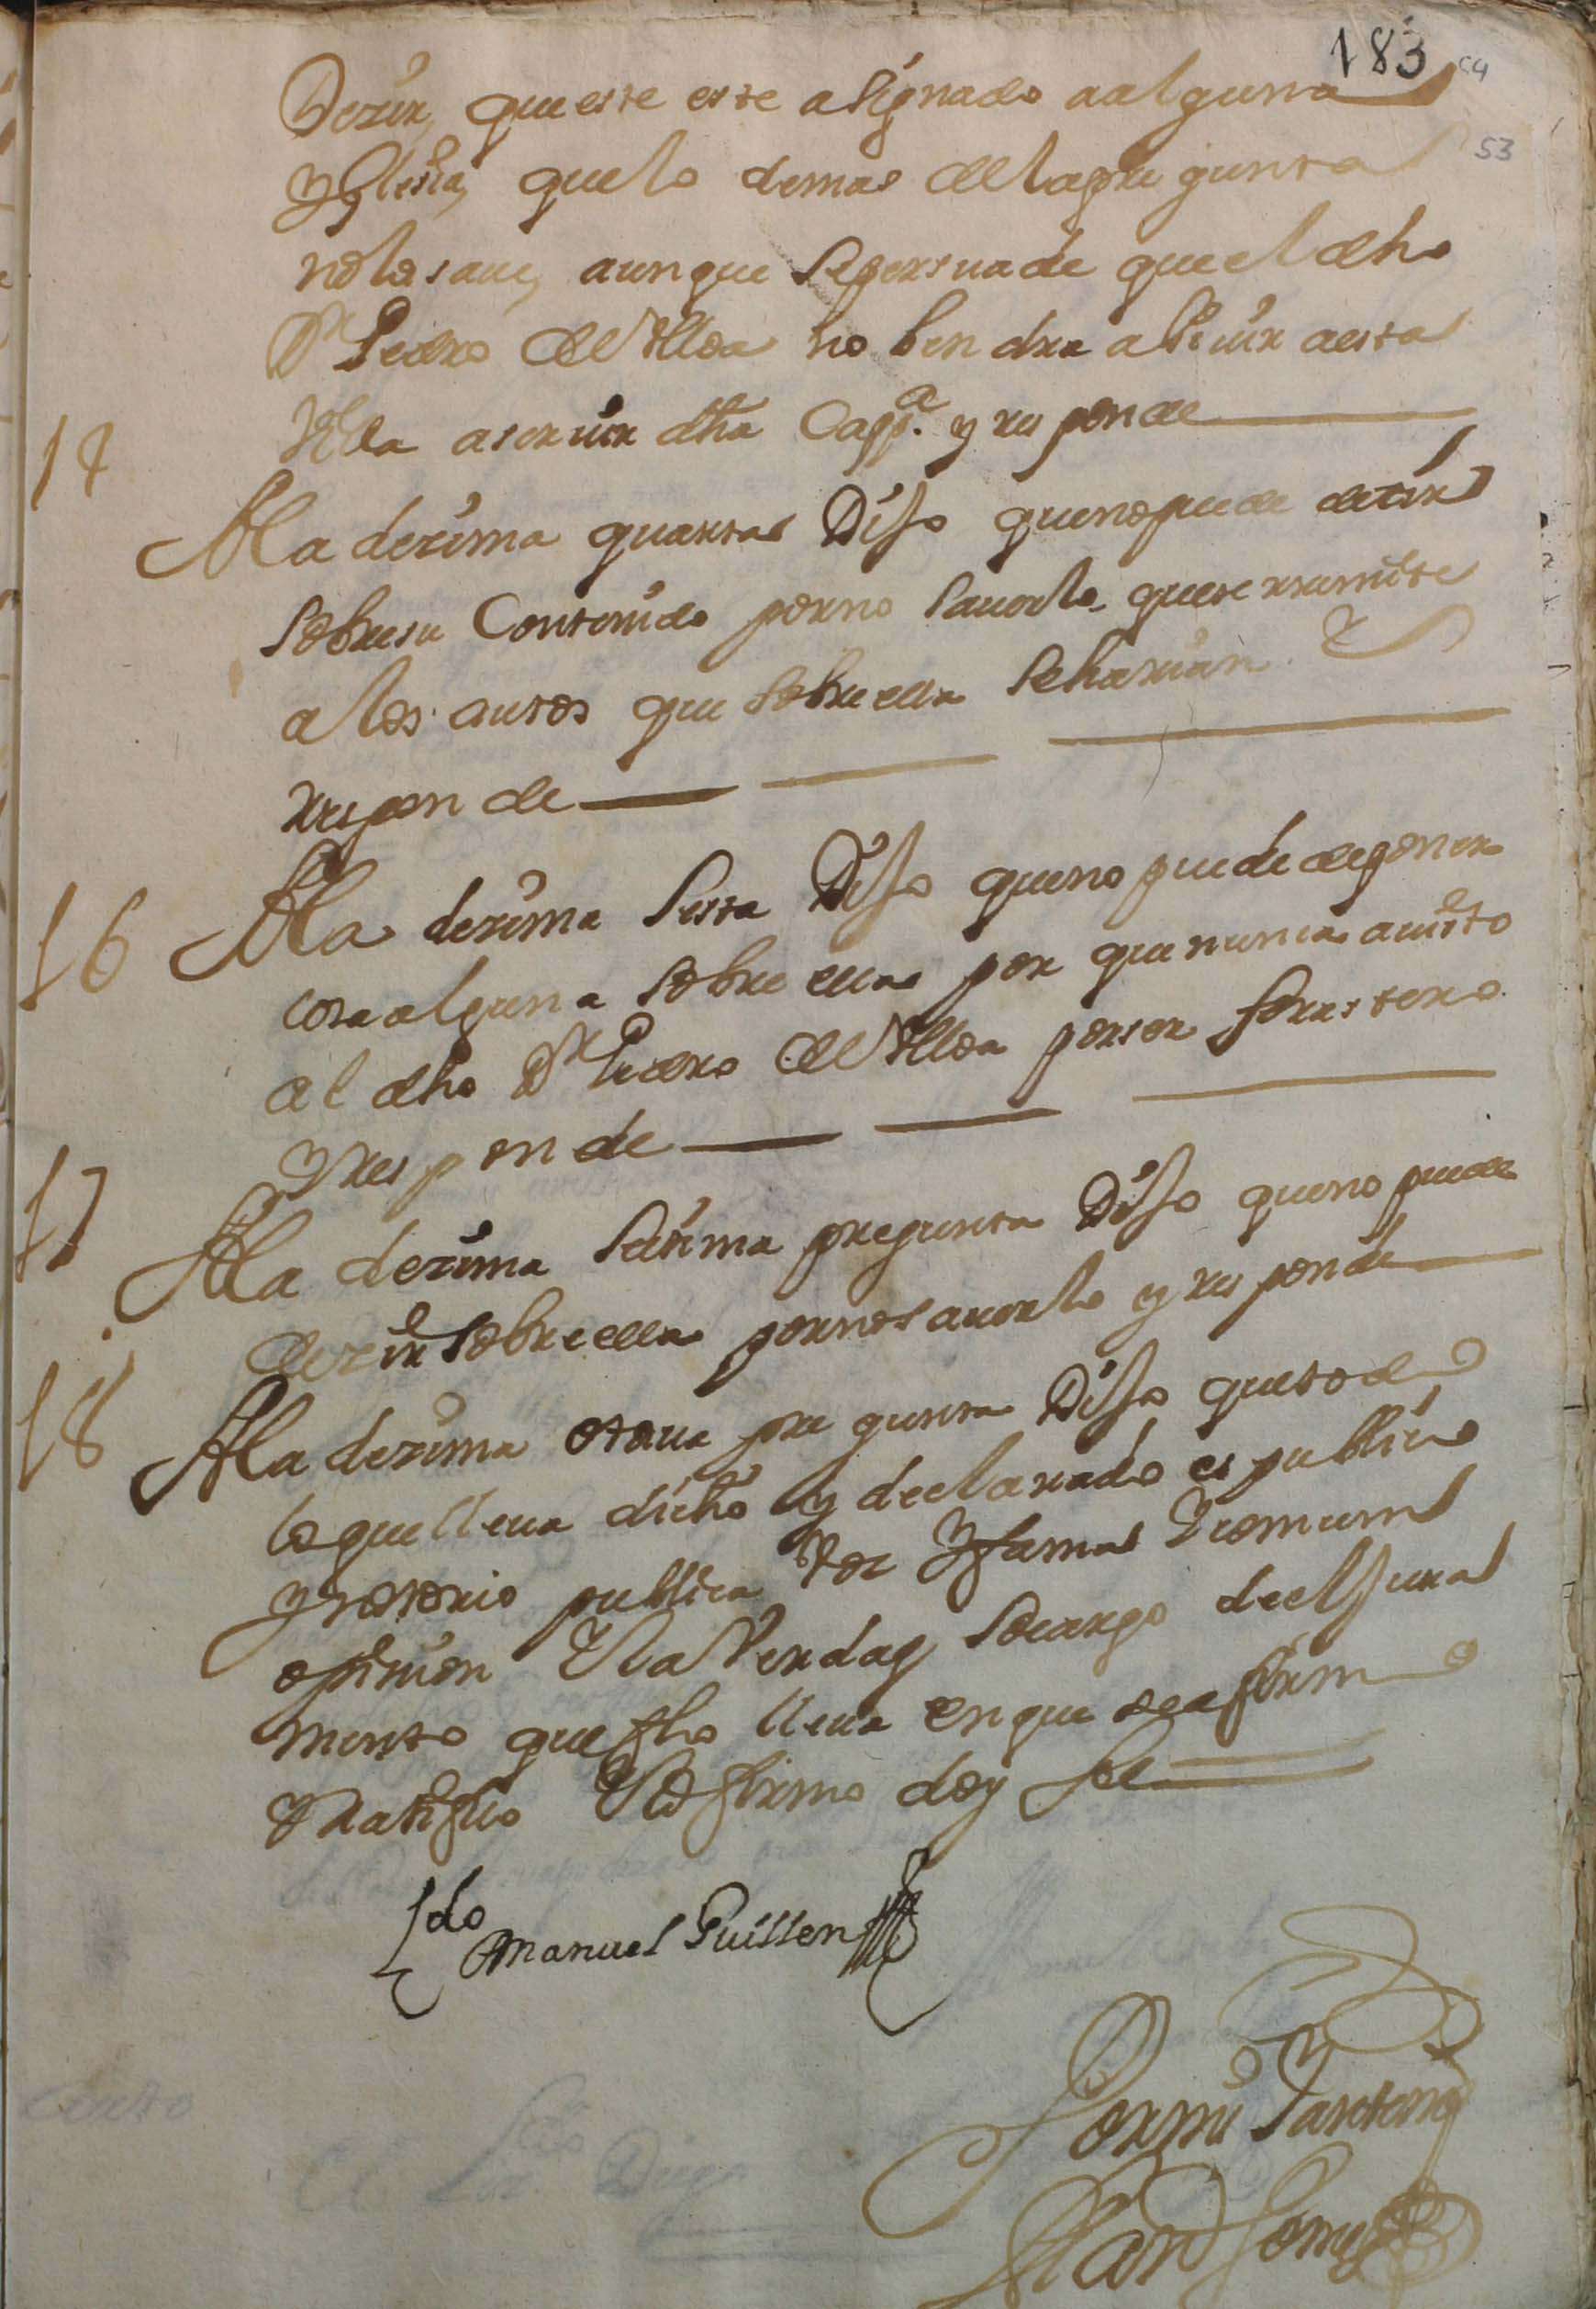 183
64
53
Dezir, que este este asignado a alguna
Yglesia, que lo demas de la pregunta
no lo saue, aunque se persuade que el dho
Dn Pedro de Vlloa no bendra a biuir a esta
Villa a seruir dha Capp.a y responde
14
A la dezima quarta Dijo que no puede dezir
sobre su Contenido por no sauerlo que se rremite
a los autos que sobre ella se harian Y
rresponde
16
A la dezima sesta Dijo que no puede deponer
cosa alguna sobre ella por que nunca a uisto
al dho Dn Pedro de Vlloa por ser forastero
Y responde
17
A la dezima setima pregunta Dijo que no puede
dezir sobre ella por no sauerlo y responde
18
A la dezima otaua pregunta Dijo que todo
lo que lleua dicho y declarado es publico
y notorio publica voz Y fama Y comun
opinion Y la Verdad, so cargo de el Jura
mento que fho lleua en que se afirmo
Y ratifico Y lo firmo doy fee
Ldo Manuel Guillen
Por mi Y Ante mi